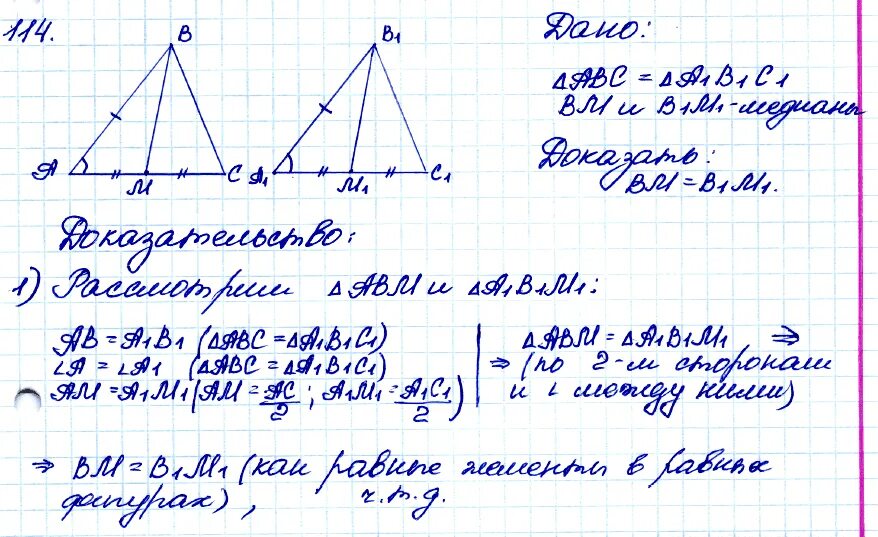 114.
B
B₁
A
M
C
A₁
M₁
C₁
Дано:
△ABC = △A₁B₁C₁
BM и B₁M₁-медианы
Доказать:
BM = B₁M₁.
Доказательство:
1) Рассмотрим △ABM и △A₁B₁M₁:
AB = A₁B₁ (△ABC = △A₁B₁C₁)
∠A = ∠A₁ (△ABC = △A₁B₁C₁)
AM = A₁M₁ (AM = AC/2; A₁M₁ = A₁C₁/2)
△ABM = △A₁B₁M₁ ⇒
⇒ (по 2-м сторонам
и ∠ между ними)
⇒ BM = B₁M₁ (как равные элементы в равных
фигурах), ч.т.д.